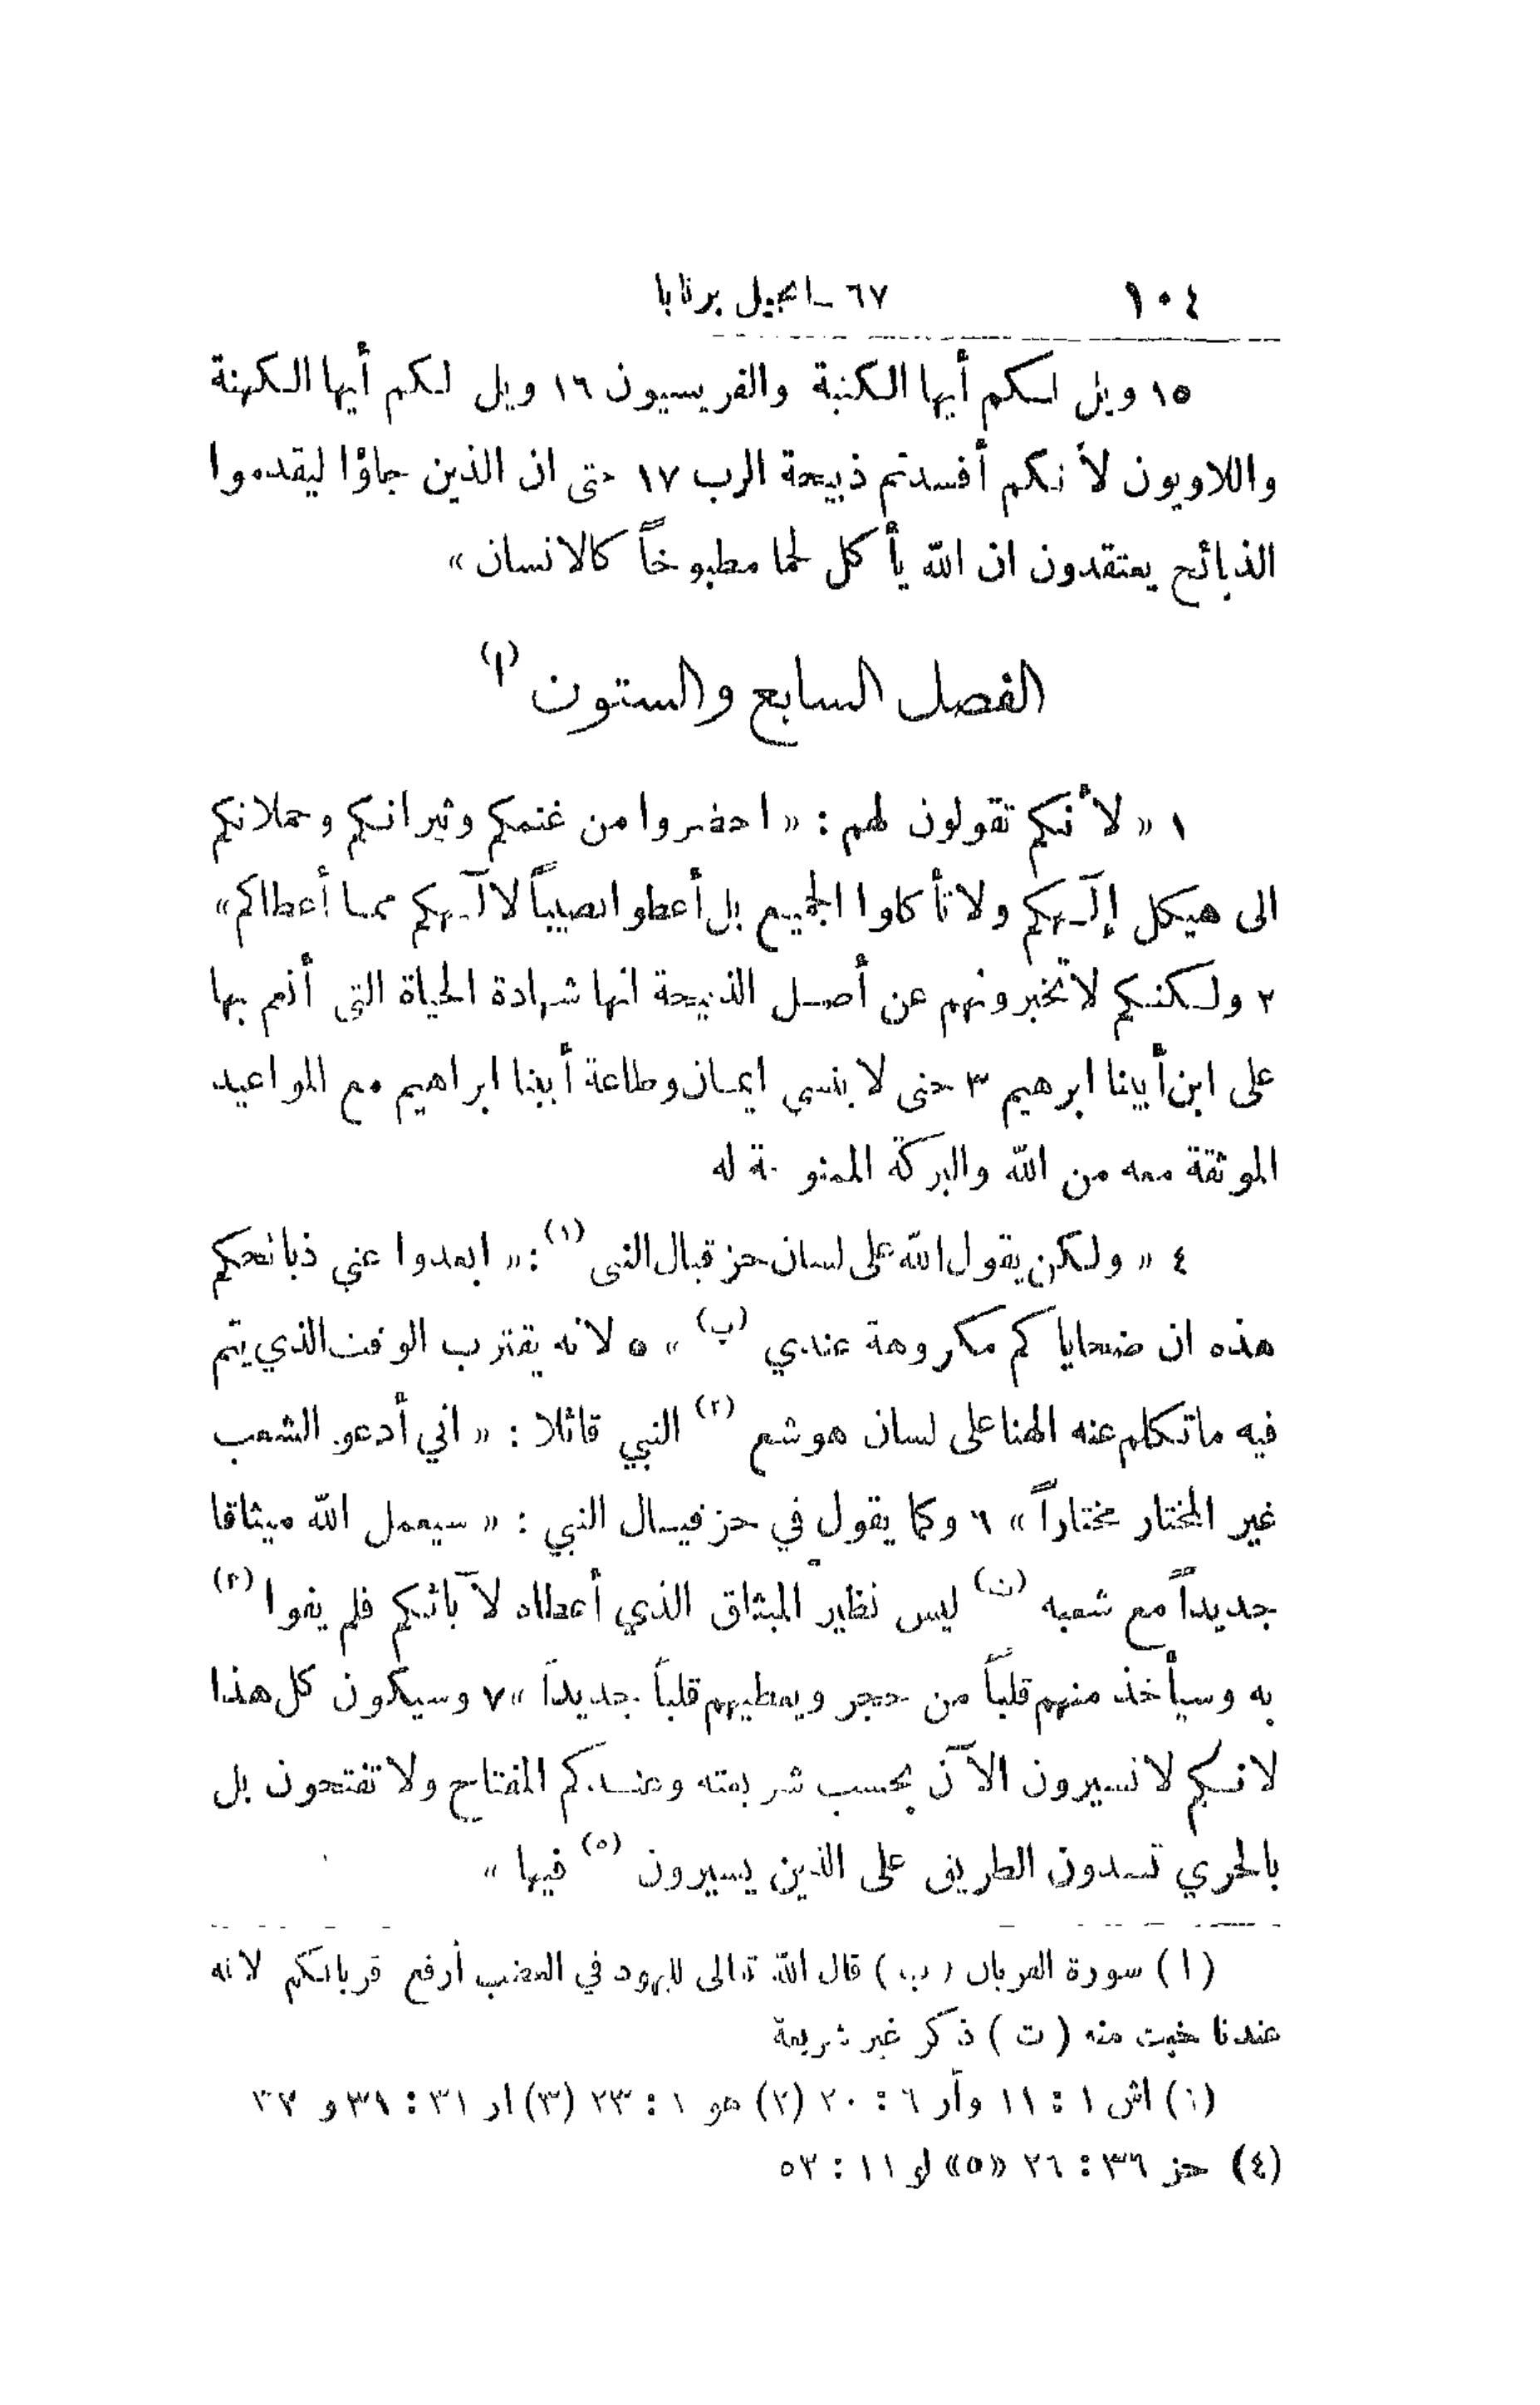 ١٠٤ ٦٧ - انجيل برنابا
١٥ ويل لكم أيها الكتبة والفريسيون ١٦ ويل لكم أيها الكهنة
واللاويون لأنكم أفسدتم ذبيحة الرب ١٧ حتى ان الذين جاؤا ليقدموا
الذبائح يعتقدون ان الله يأكل لحما مطبوخاً كالانسان »
الفصل السابع والستون (ا)
١ « لأنكم تقولون لهم : « احضروا من غنمكم وثيرانكم وحملانكم
الى هيكل إلَهكم ولا تأكلوا الجميع بل أعطوا نصيباً لالَهكم مما أعطاكم »
٢ ولكنكم لا تخبرونهم عن أصل الذبيحة انها شهادة الحياة التي أنعم بها
على ابن أبينا ابرهيم ٣ حتى لا ينسي ايمان وطاعة أبينا ابراهيم مع المواعيد
الموثقة معه من الله والبركة الممنوحة له
٤ « ولكن يقول الله على لسان حزقيال النبى (١) : « ابعدوا عني ذبائحكم
هذه ان ضحاياكم مكروهة عندي (ب) » ٥ لانه يقترب الوقت الذي يتم
فيه ما تكلم عنه الهنا على لسان هوشع (٢) النبي قائلا : « اني أدعو الشعب
غير المختار مختاراً » ٦ وكما يقول في حزقيال النبي : « سيعمل الله ميثاقا
جديداً مع شعبه (ت) ليس نظير الميثاق الذي أعطاه لآبائكم فلم يفوا (٣)
به وسيأخذ منهم قلباً من حجر ويعطيهم قلباً جديداً » ٧ وسيكون كل هذا
لانكم لا تسيرون الآن بحسب شريعته وعندكم المفتاح ولا تفتحون بل
بالحري تسدون الطريق على الذين يسيرون (٥) فيها »
(ا) سورة القربان (ب) قال الله تعالى لليهود في الغضب أرفع قربانكم لانه
عندنا خبث منه (ت) ذكر غير شريعة
(١) اش ١ : ١١ وأر ٦ : ٢٠ (٢) هو ١ : ٢٣ (٣) ار ٣١ : ٣١ و ٣٢
(٤) حز ٣٦ : ٢٦ «٥» لو ١١ : ٥٢